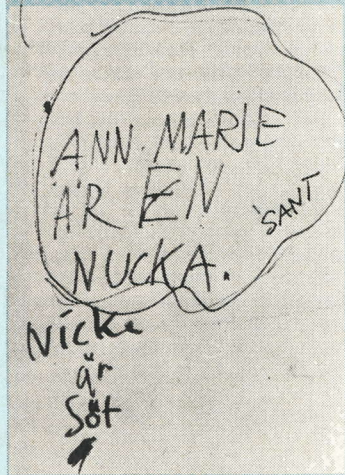 ANN-MARIE
ÄR EN
NUCKA.
SANT
Nicke
är
Söt